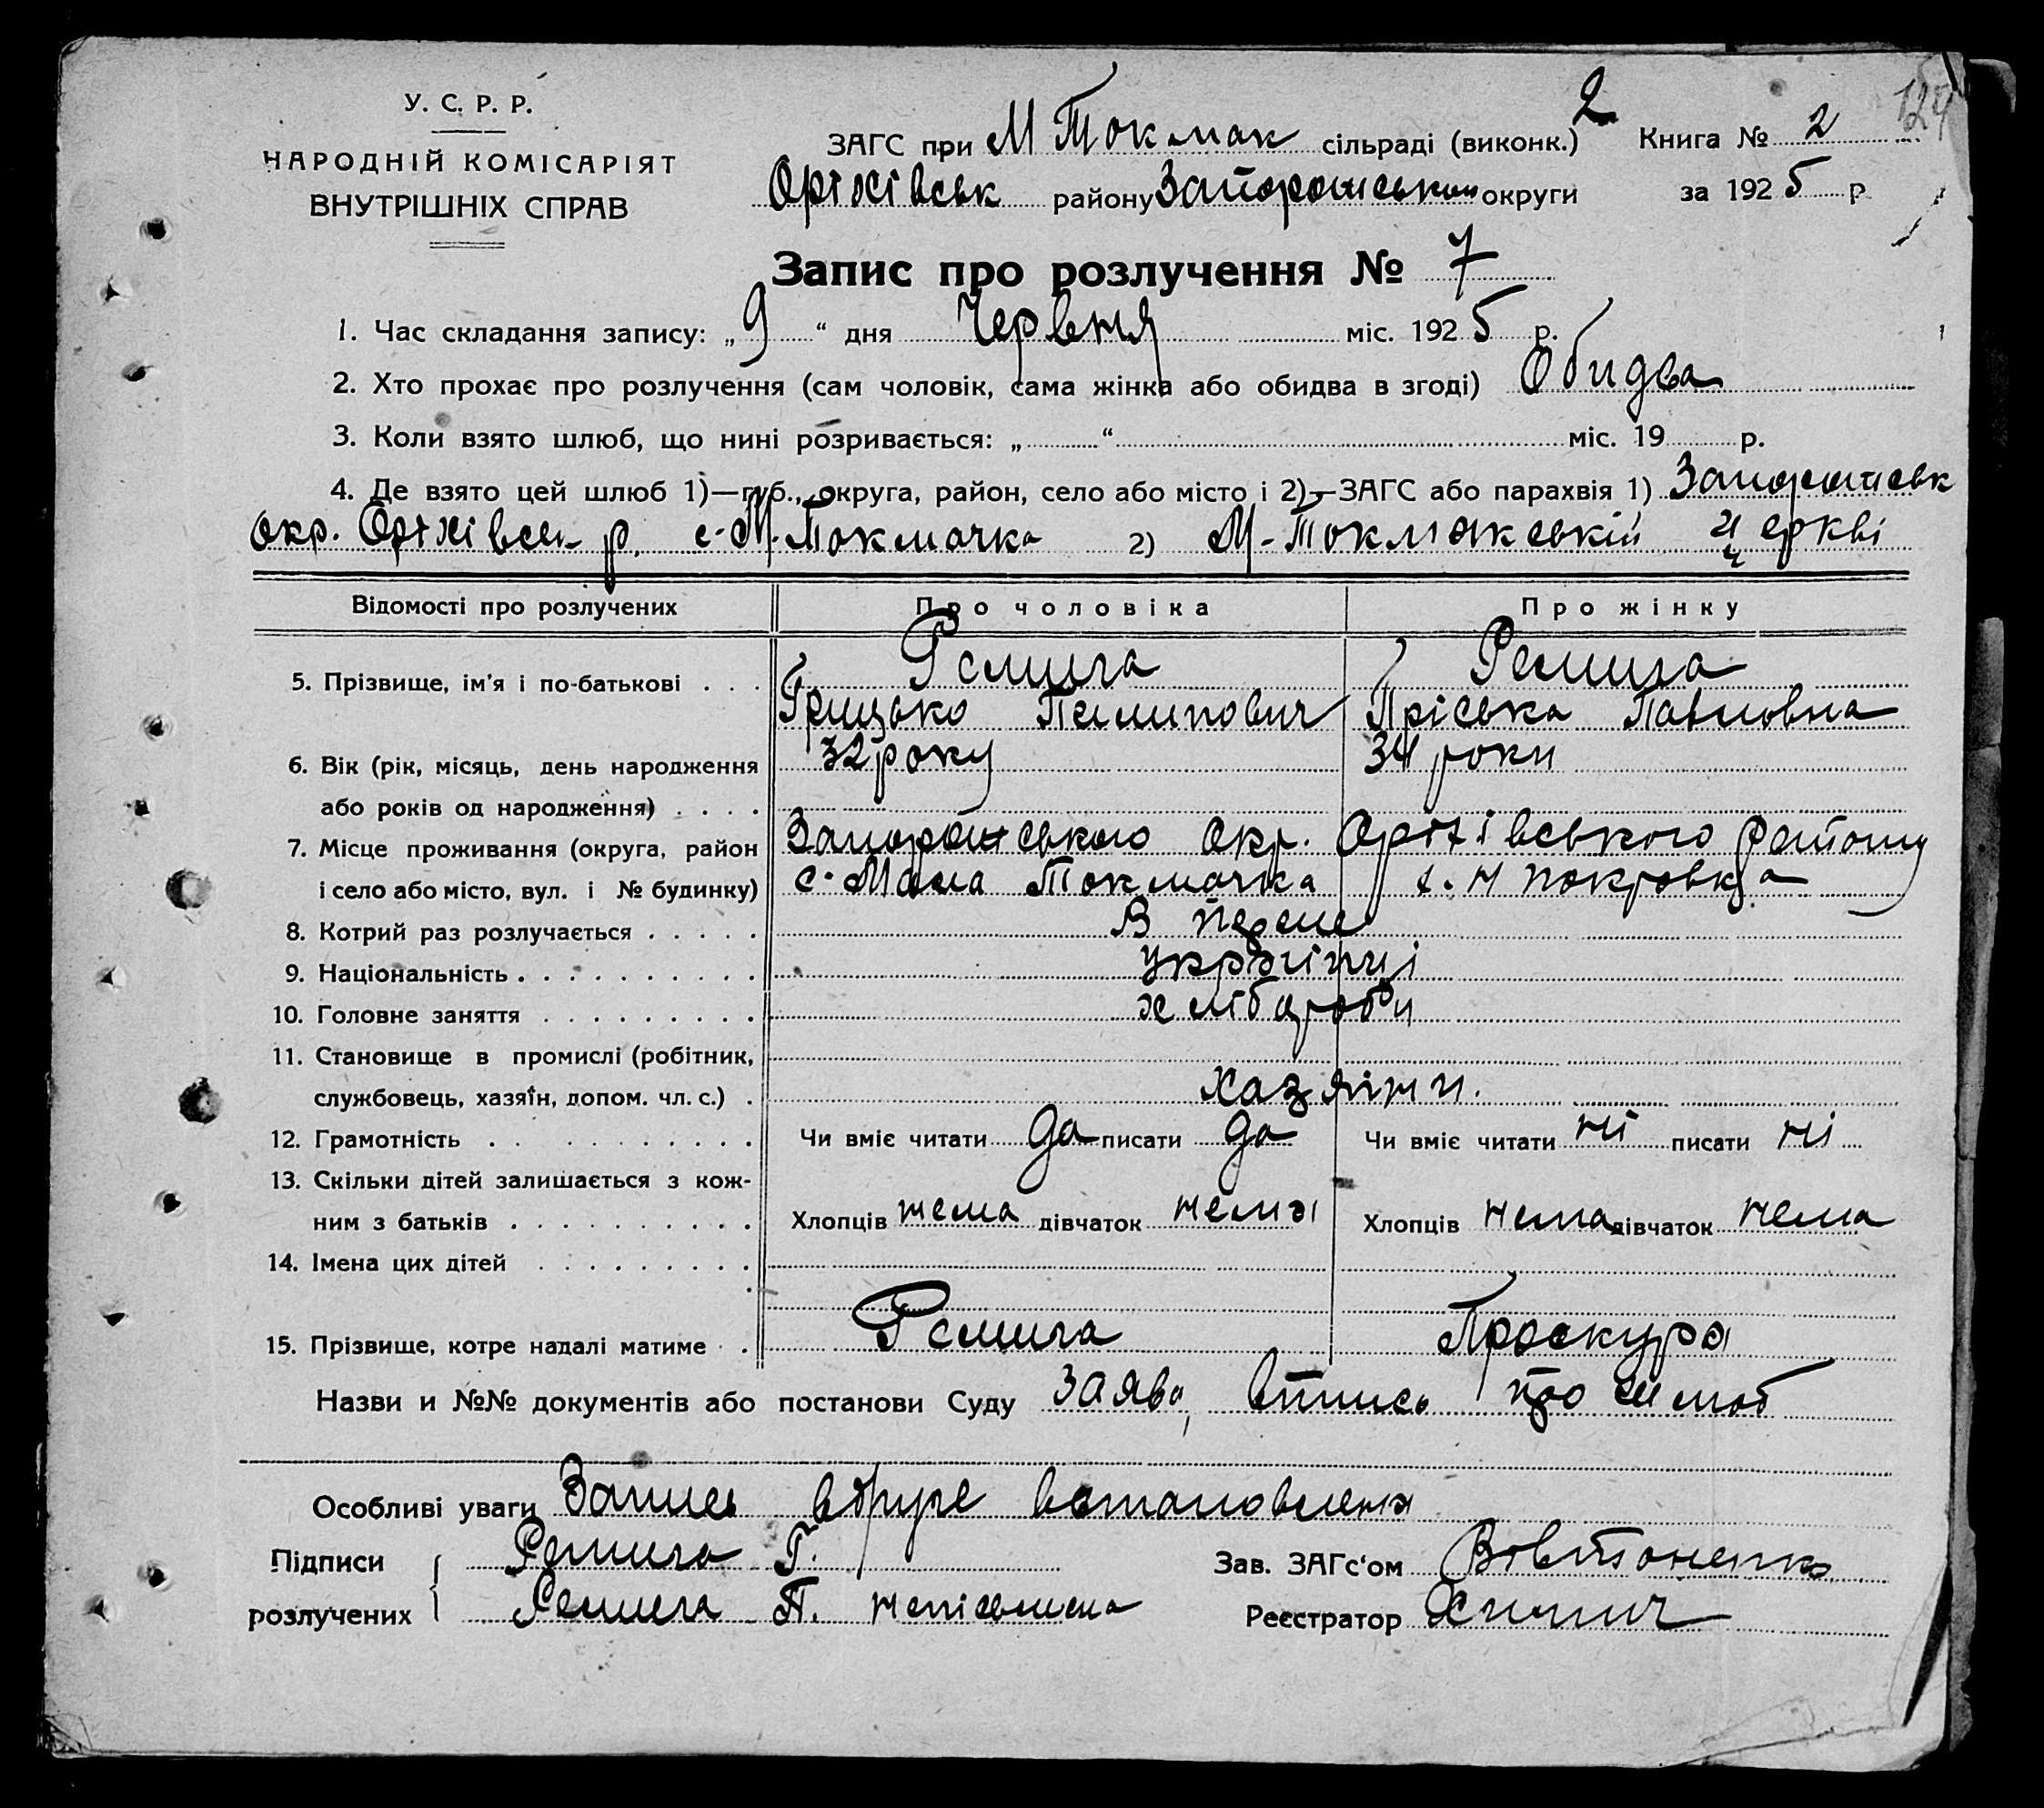 У. С. Р. Р.
НАРОДНІЙ КОМІСАРІЯТ
ВНУТРІШНІХ СПРАВ
2
124
ЗАГС при М Токмак сільраді (виконк.) Книга № 2
Оріхівськ району Запорожської округи за 1925 р.
Запис про розлучення № 7
1. Час складання запису: „9“ дня Червня міс. 1925 р.
2. Хто прохає про розлучення (сам чоловік, сама жінка або обидва в згоді) Обидва
3. Коли взято шлюб, що нині розривається: „ “ міс. 19 р.
4. Де взято цей шлюб 1)—губ., округа, район, село або місто і 2)—ЗАГС або парахвія 1) Запорожськ
окр. Оріхівськ р. с. М. Токмачка 2) М-Токмакській церкві
Відомості про розлучених Про чоловіка Про жінку
5. Прізвище, ім’я і по-батькові . . . Ремига Ремига
Грицько Пилипович Пріська Павловна
6. Вік (рік, місяць, день народження 32 року 34 роки
або років од народження) . . . .
7. Місце проживання (округа, район Запорожського окр. Оріхівського району
і село або місто, вул. і № будинку) с. Мала Токмачка с. Н Покровка
8. Котрий раз розлучається . . . . . В перше
9. Національність . . . . . . . . . . українці
10. Головне заняття . . . . . . . . . хлібароби
11. Становище в промислі (робітник,
службовець, хазяїн, допом. чл. с.) . хазяіни.
12. Грамотність . . . . . . . . . . Чи вміє читати да писати да Чи вміє читати ні писати ні
13. Скільки дітей залишається з кож-
ним з батьків . . . . . . . . . . Хлопців нема дівчаток нема Хлопців нема дівчаток нема
14. Імена цих дітей . . . . . . . . .
15. Прізвище, котре надалі матиме . . Ремига Проскура
Назви и №№ документів або постанови Суду Заява, впись про шлюб
Особливі уваги Запись вдруге встановлена
Підписи Ремига Г. Зав. ЗАГс‘ом Вовтоненко
розлучених Ремига П. неписьмена Реєстратор